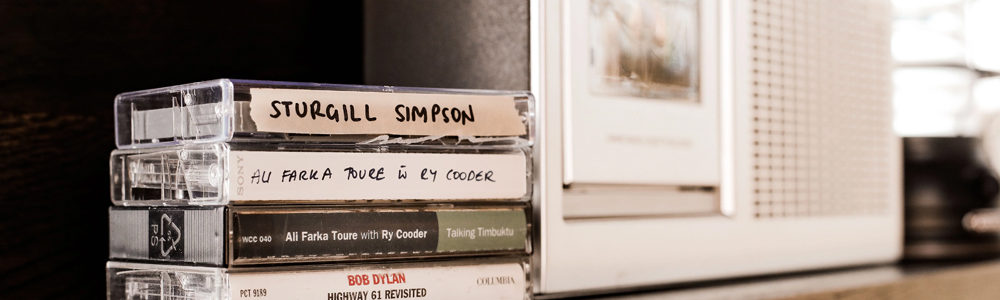 STURGILL SIMPSON
SONY
ALI FARKA TOURE w̄ RY COODER
PS
WCC 040 Ali Farka Toure with Ry Cooder Talking Timbuktu
BOB DYLAN COLUMBIA
PCT 9189 HIGHWAY 61 REVISITED